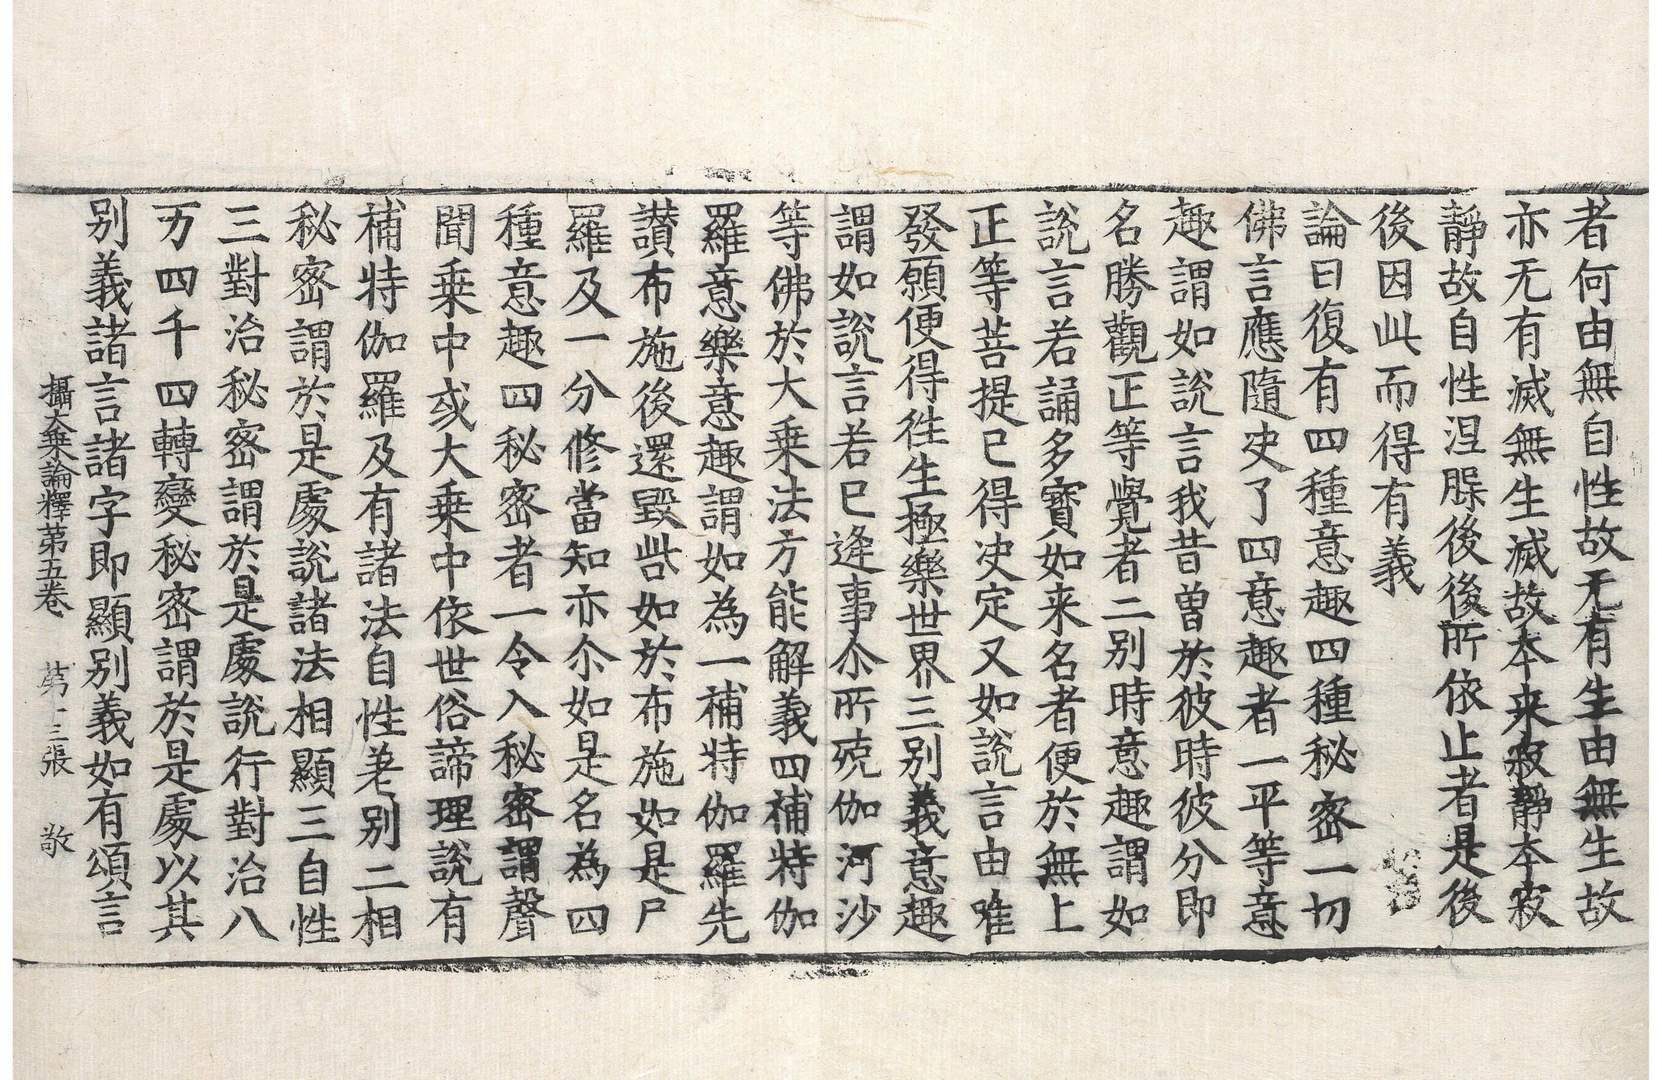 者何由無自性故无有生由無生故
亦无有滅無生滅故本来寂靜本寂
靜故自性涅槃後後所依止者是後
後因此而得有義
論曰復有四種意趣四種秘密一切
佛言應隨決了四意趣者一平等意
趣謂如說言我昔曾於彼時彼分即
名勝觀正等覺者二別時意趣謂如
說言若誦多寶如来名者便於無上
正等菩提已得决定又如說言由唯
發願便得徃生極樂世界三別義意趣
謂如說言若已逢事尒所殑伽河沙
等佛於大乗法方能解義四補特伽
羅意樂意趣謂如為一補特伽羅先
讃布施後還毀呰如於布施如是尸
羅及一分修當知亦尒如是名為四
種意趣四秘密者一令入秘密謂聲
聞乗中或大乗中依世俗諦理說有
補特伽羅及有諸法自性差別二相
秘密謂於是處說諸法相顯三自性
三對治秘密謂於是處說行對治八
万四千四轉變秘密謂於是處以其
別義諸言諸字即顯別義如有頌言
攝大乗論釋第五卷 第十三張 敬